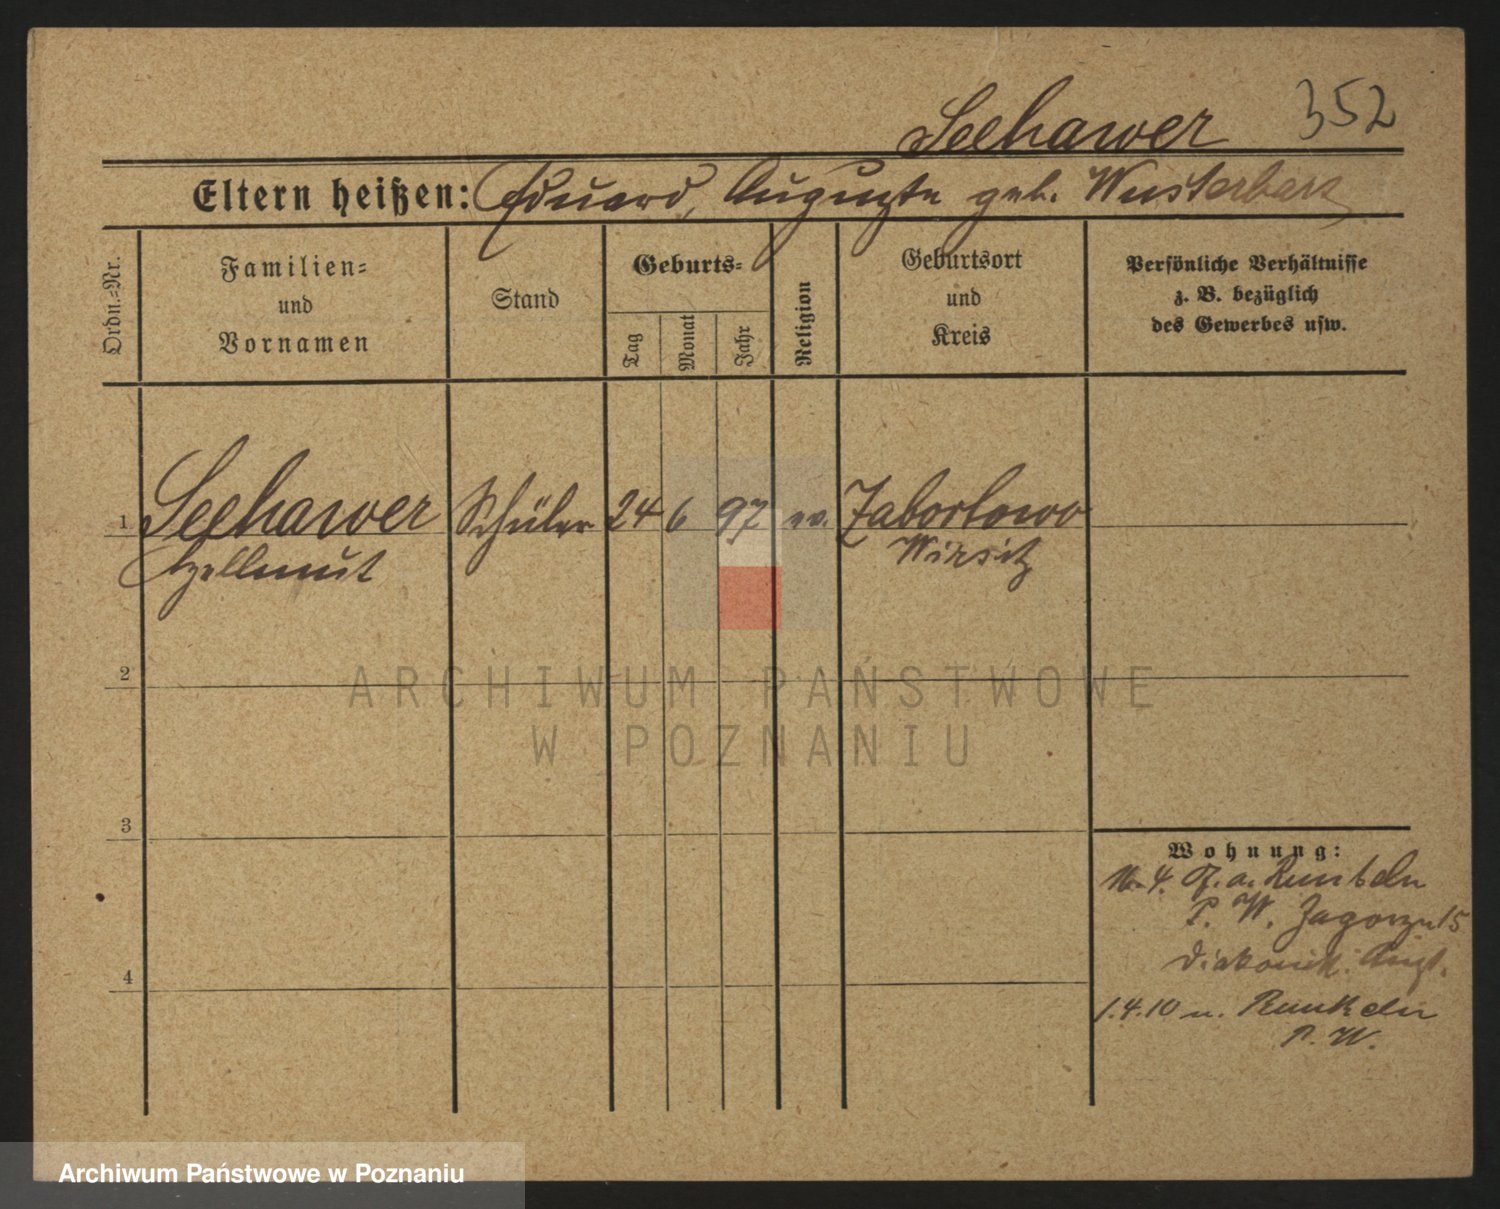 Seehawer 352
Eltern heißen: Eduard, Auguste geb. Wusterbarz
Ordn.=Nr.
Familien=
und
Vornamen
Stand
Geburts=
Tag
Monat
Jahr
Religion
Geburtsort
und
Kreis
Persönliche Verhältnisse
z. B. bezüglich
des Gewerbes usw.
1 Seehawer Schüler 24 6 97 ev. Zabortowo
Hellmut Wirsitz
2
ARCHIWUM PAŃSTWOWE
W POZNANIU
3
Wohnung:
4. a. Runkeln
P. W. Zagorze 15
Diakoniss. Anst.
4
1.4.10 n. Runkeln
P. W.
Archiwum Państwowe w Poznaniu